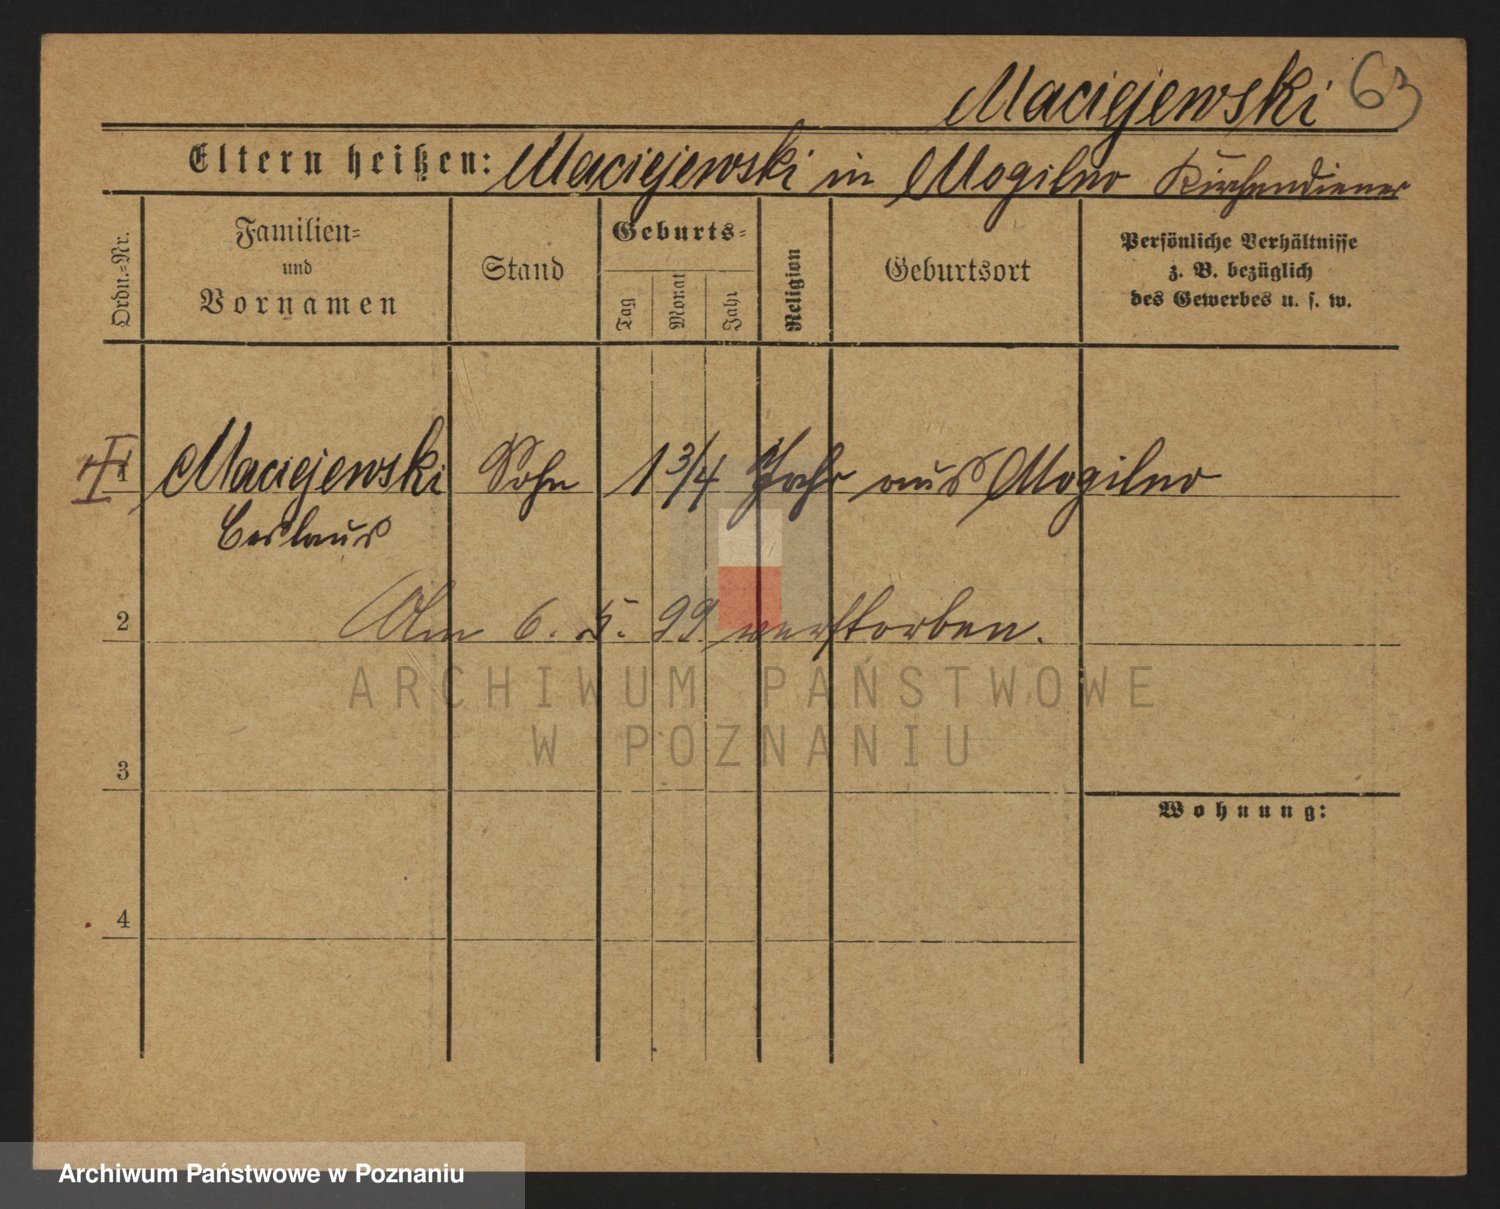 Maciejewski 63
Eltern heißen: Maciejewski in Mogilno Kirchendiener
Ordn.-Nr.
Familien-
und
Vornamen
Stand
Geburts-
Tag
Monat
Jahr
Religion
Geburtsort
Persönliche Verhältnisse
z. B. bezüglich
des Gewerbes u. s. w.
1 Maciejewski Sohn 1 3/4 Jahr aus Mogilno
Ceslaus
2 Am 6. 5. 99 verstorben.
ARCHIWUM PAŃSTWOWE
W POZNANIU
3
Wohnung:
4
Archiwum Państwowe w Poznaniu